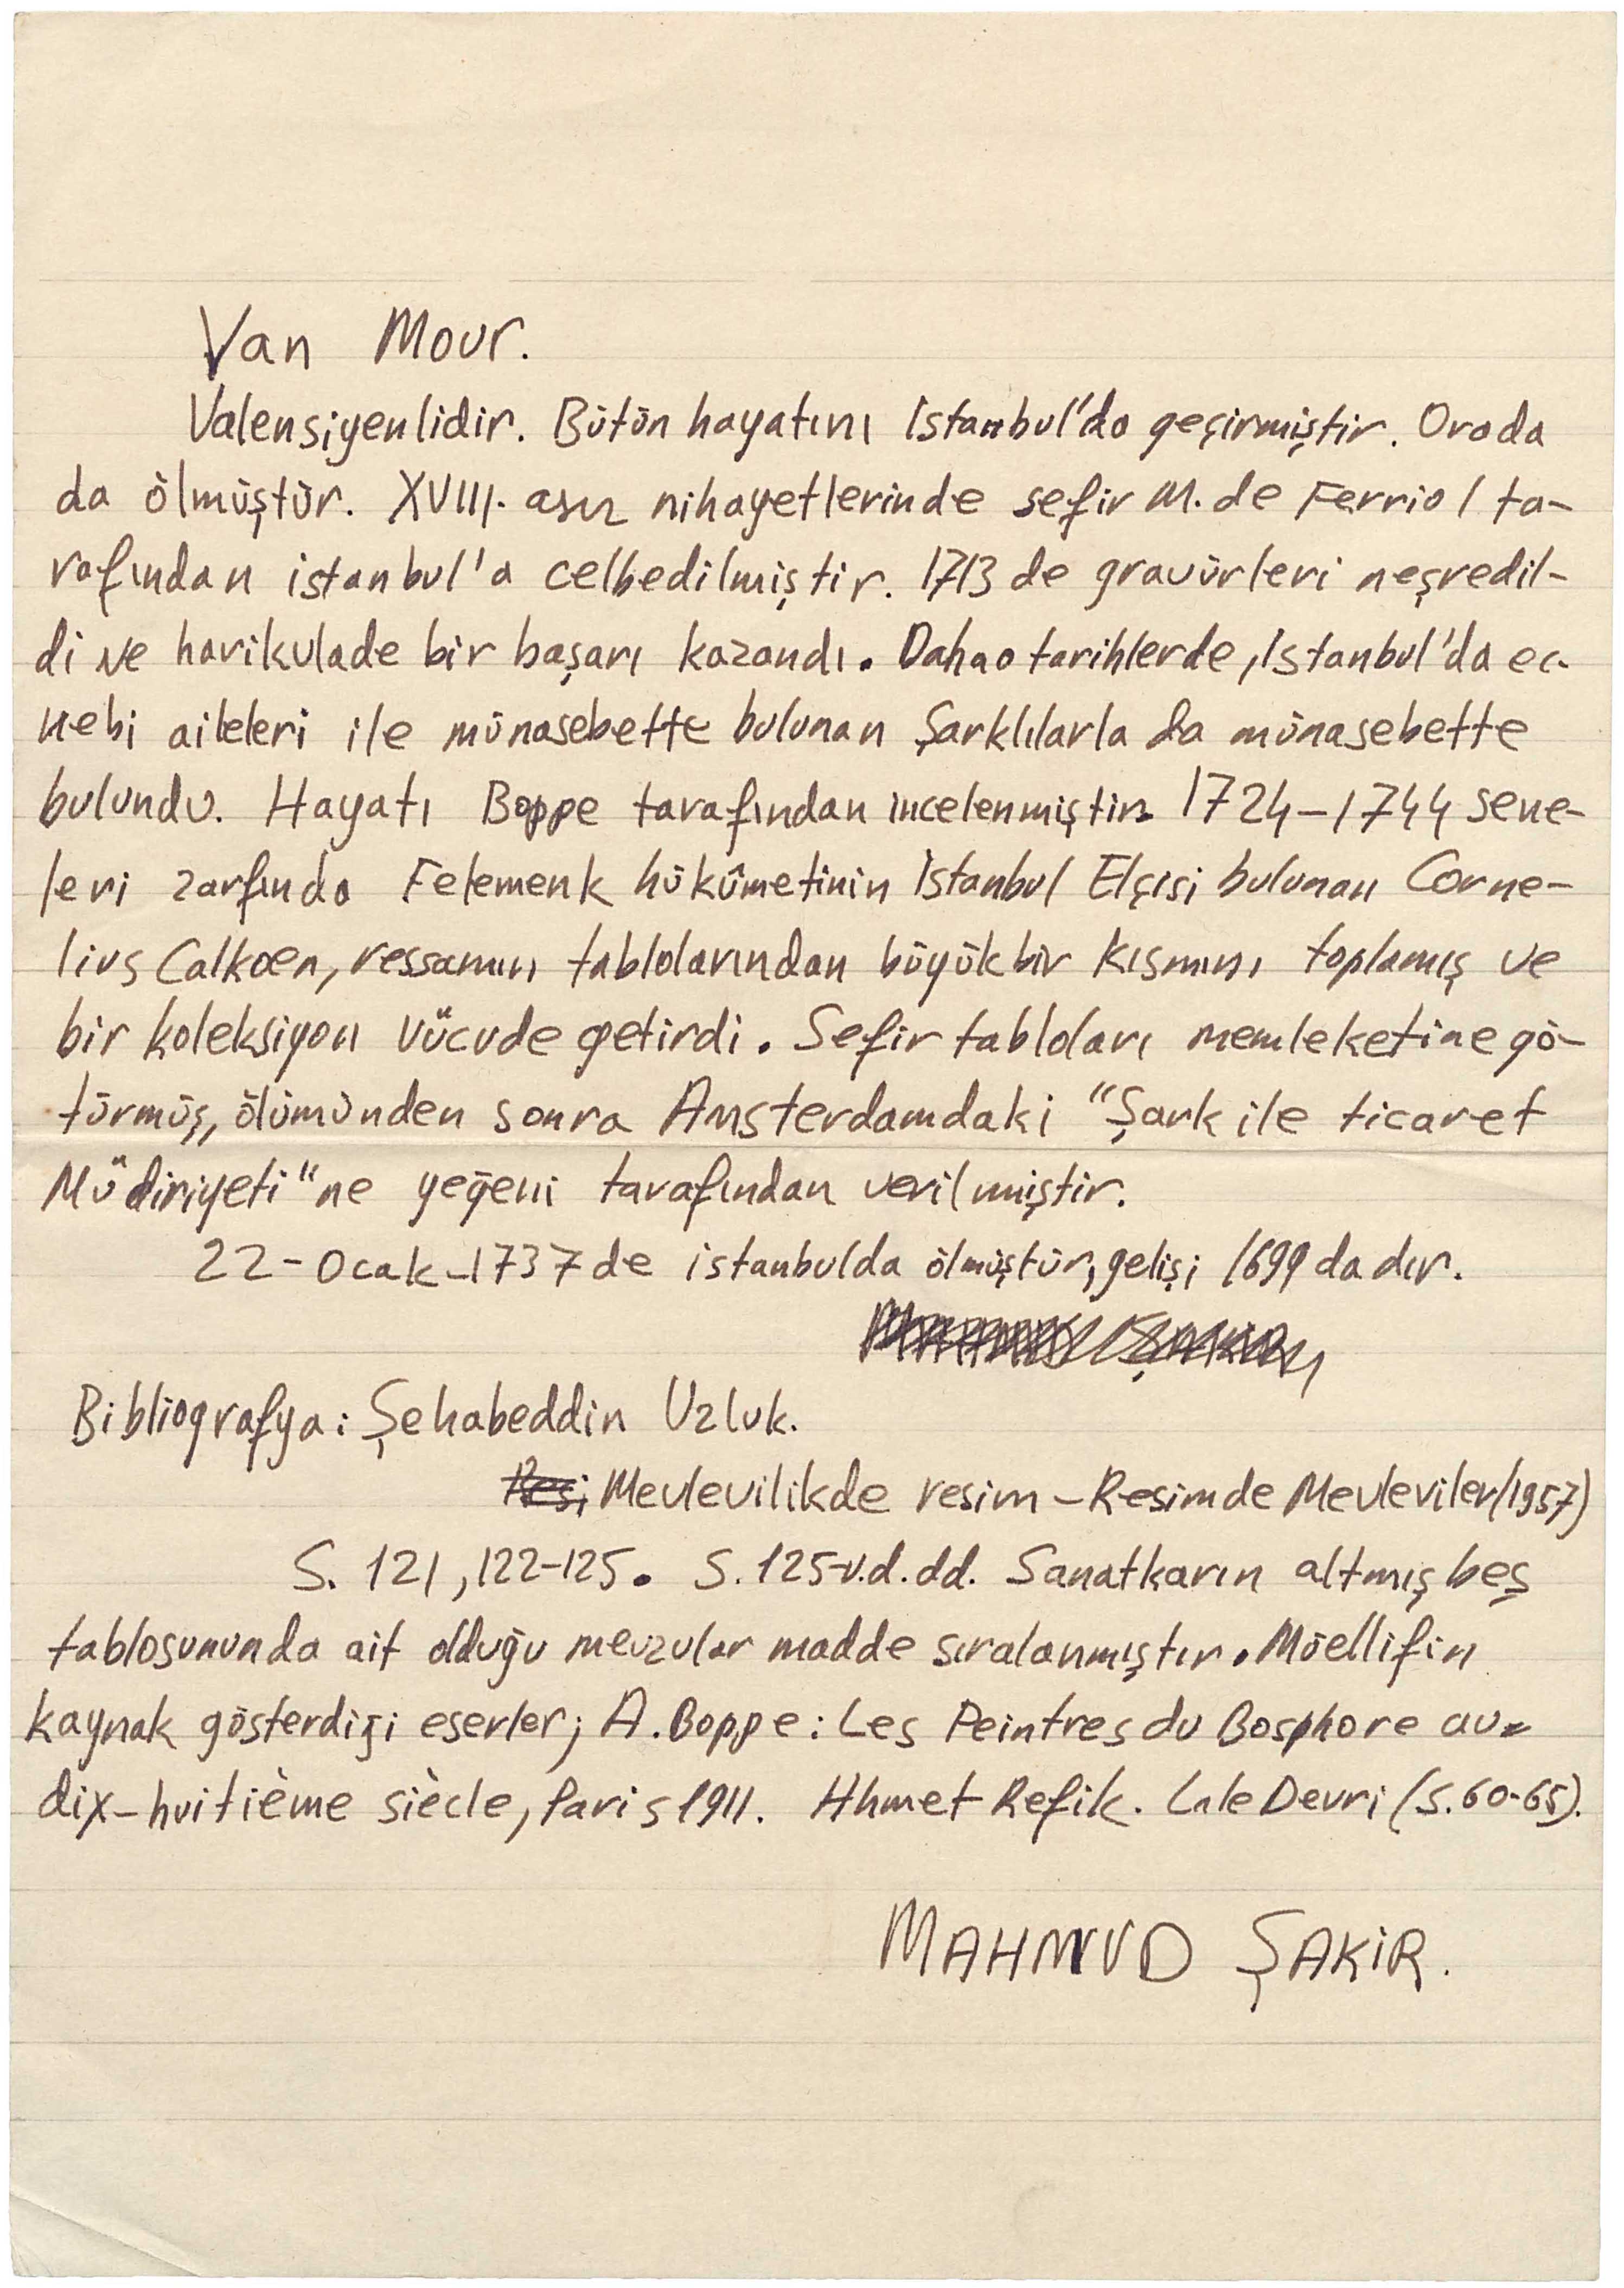 Van Mour.
Valensiyenlidir. Bütün hayatını İstanbul'da geçirmiştir. Orada
da ölmüştür. XVIII. asır nihayetlerinde sefir M. de Ferriol ta-
rafından istanbul'a celbedilmiştir. 1713 de gravürleri neşredil-
di ve harikulade bir başarı kazandı. Daha o tarihlerde, İstanbul'da ec-
nebi aileleri ile münasebette bulunan Şarklılarla da münasebette
bulundu. Hayatı Boppe tarafından incelenmiştir. 1724-1744 sene-
leri zarfında Felemenk hükûmetinin İstanbul Elçisi bulunan Corne-
lius Calkoen, ressamın tablolarından büyük bir kısmını toplamış ve
bir koleksiyon vücude getirdi. Sefir tabloları memleketine gö-
türmüş, ölümünden sonra Amsterdamdaki "Şark ile ticaret
Müdiriyeti" ne yeğeni tarafından verilmiştir.
22-Ocak-1737 de istanbulda ölmüştür, gelişi 1699 da dır.
Bibliografya: Şehabeddin Uzluk.
Resi Mevlevilikde resim - Resimde Mevleviler (1957)
S. 121, 122-125. S. 125-v.d.dd. Sanatkarın altmış beş
tablosununda ait olduğu mevzular madde sıralanmıştır. Müellifin
kaynak gösterdiği eserler; A. Boppe: Les Peintres du Bosphore au-
dix-huitième siècle, Paris 1911. Ahmet Refik. Lale Devri (S. 60-65).
MAHMUD ŞAKİR.